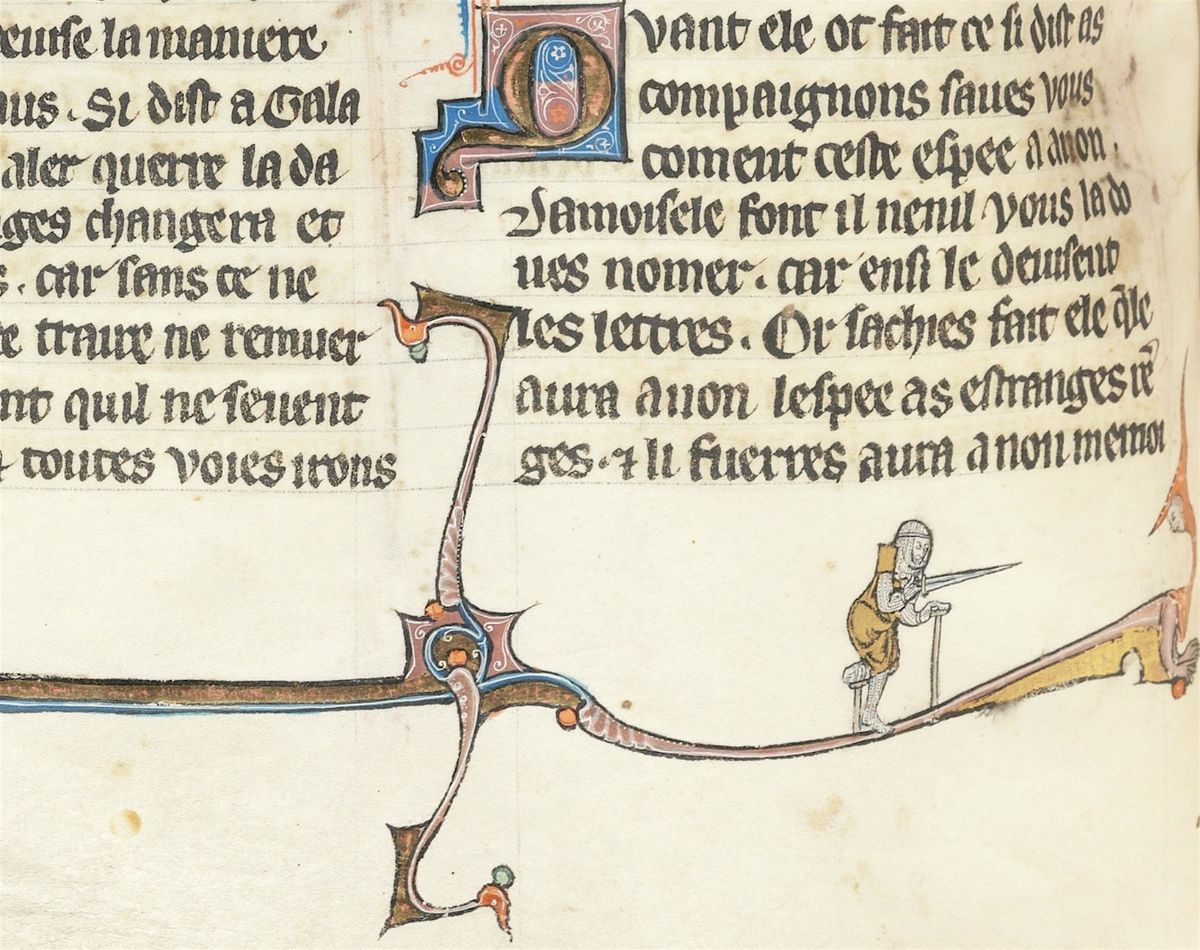 euise la maniere
aus. Si dist a Gala
aler querre la da
nges changera et
s. car sans ce ne
te traire ne remuer
nt quil ne seuent
toutes voies irons
Quant ele ot fait ce si dist as
compaignons saues vous
coment ceste espee a anon.
Damoisele font il nenil vous la do
ues nomer. car ensi le deuisent
les lettres. Or sachies fait ele q̄le
aura anon lespee as estranges rē
ges. ⁊ li fuerres aura anon memoi